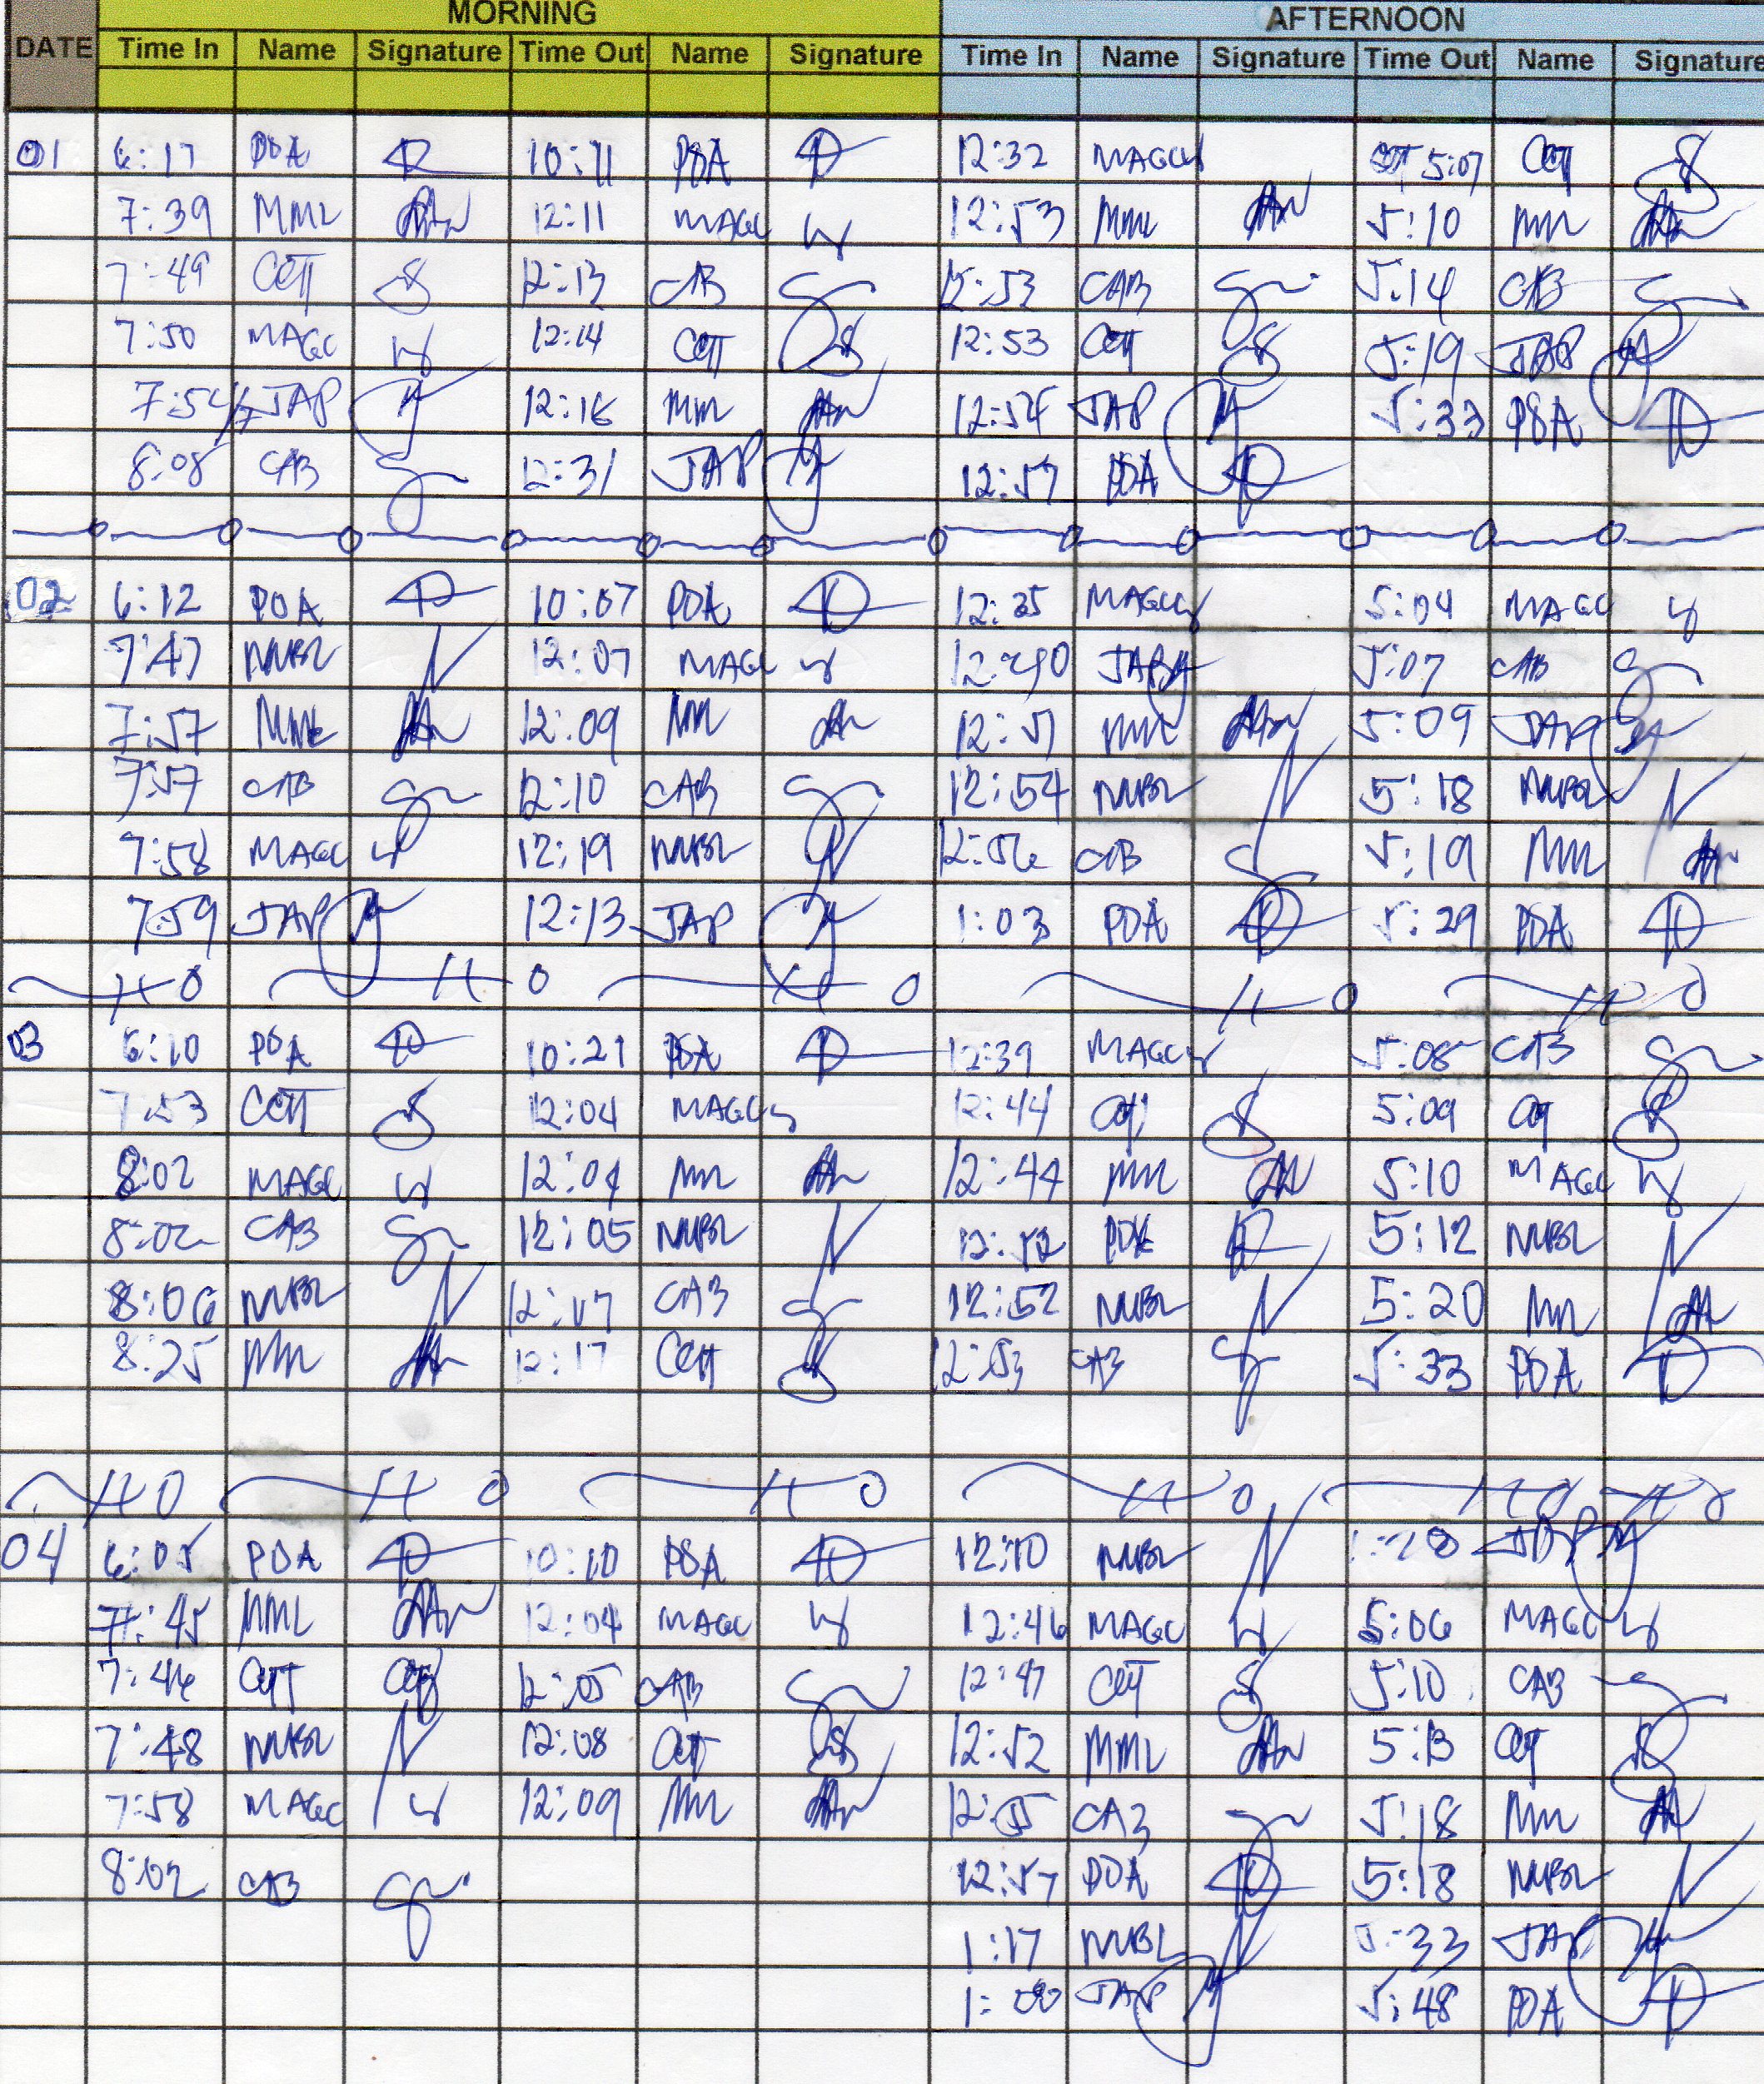 MORNING AFTERNOON
DATE Time In Name Signature Time Out Name Signature Time In Name Signature Time Out Name Signature
01 6:17 PDA 10:11 PDA 12:32 MAGC 5:07 CETT
7:39 MML 12:11 MAGC 12:53 MML 5:10 MML
7:49 CETT 12:13 CAB 12:53 CAB 5:14 CAB
7:50 MAGC 12:14 CETT 12:53 CETT 5:19 JAP
7:54 JAP 12:16 MML 12:54 JAP 5:33 PDA
8:08 CAB 12:31 JAP 12:57 PDA
02 6:12 PDA 10:07 PDA 12:35 MAGC 5:04 MAGC
7:47 NVBL 12:07 MAGC 12:40 JAP 5:07 CAB
7:57 MML 12:09 MML 12:51 MML 5:09 JAP
7:57 CAB 12:10 CAB 12:54 NVBL 5:18 NVBL
7:58 MAGC 12:19 NVBL 12:56 CAB 5:19 MML
7:59 JAP 12:13 JAP 1:03 PDA 5:29 PDA
03 6:10 PDA 10:21 PDA 12:39 MAGC 5:08 CAB
7:53 CETT 12:04 MAGC 12:44 CETT 5:09 CETT
8:02 MAGC 12:04 MML 12:44 MML 5:10 MAGC
8:02 CAB 12:05 NVBL PDA 5:12 NVBL
8:06 NVBL 12:17 CAB 12:52 NVBL 5:20 MML
8:25 MML 12:17 CETT 12:53 CAB 5:33 PDA
04 6:05 PDA 10:10 PDA 12:10 NVBL JAP
7:45 MML 12:04 MAGC 12:46 MAGC 5:06 MAGC
7:46 CETT 12:05 CAB 12:47 CETT 5:10 CAB
7:48 NVBL 12:08 CETT 12:52 MML 5:13 CETT
7:58 MAGC 12:09 MML 12:55 CAB 5:18 MML
8:02 CAB 12:57 PDA 5:18 NVBL
1:17 NVBL 5:33 JAP
JAP 5:48 PDA